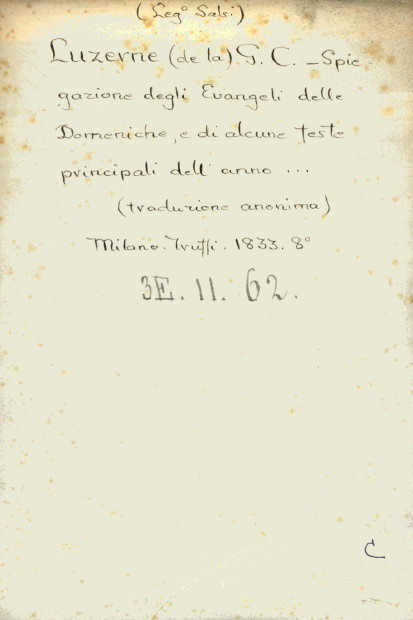 (Leg° Salsi)
Luzerne (de la) G. C. - Spie
gazione degli Evangeli delle
Domeniche, e di alcune feste
principali dell' anno ...
(traduzione anonima)
Milano. Truffi. 1833. 8°
3E. 11. 62.
C